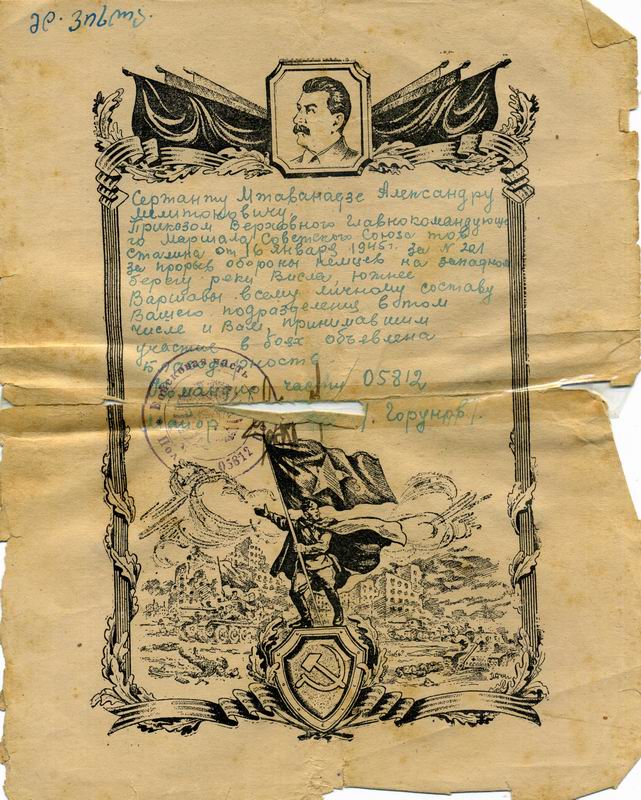 მდ. ვისლა.
Сержанту Мтаванадзе Александру
Мелитоновичу
Приказом Верховного Главнокомандующе
го Маршала Советского Союза тов
Сталина от 16 января 1945 г. за № 221
за прорыв обороны немцев на западном
берегу реки Висла южнее
Варшавы всему личному составу
Вашего подразделения в том
числе и Вам, принимавшим
участие в боях объявлена
Благодарность
Командир части 05812
Майор /Горунов/.
Войсковая часть
05812